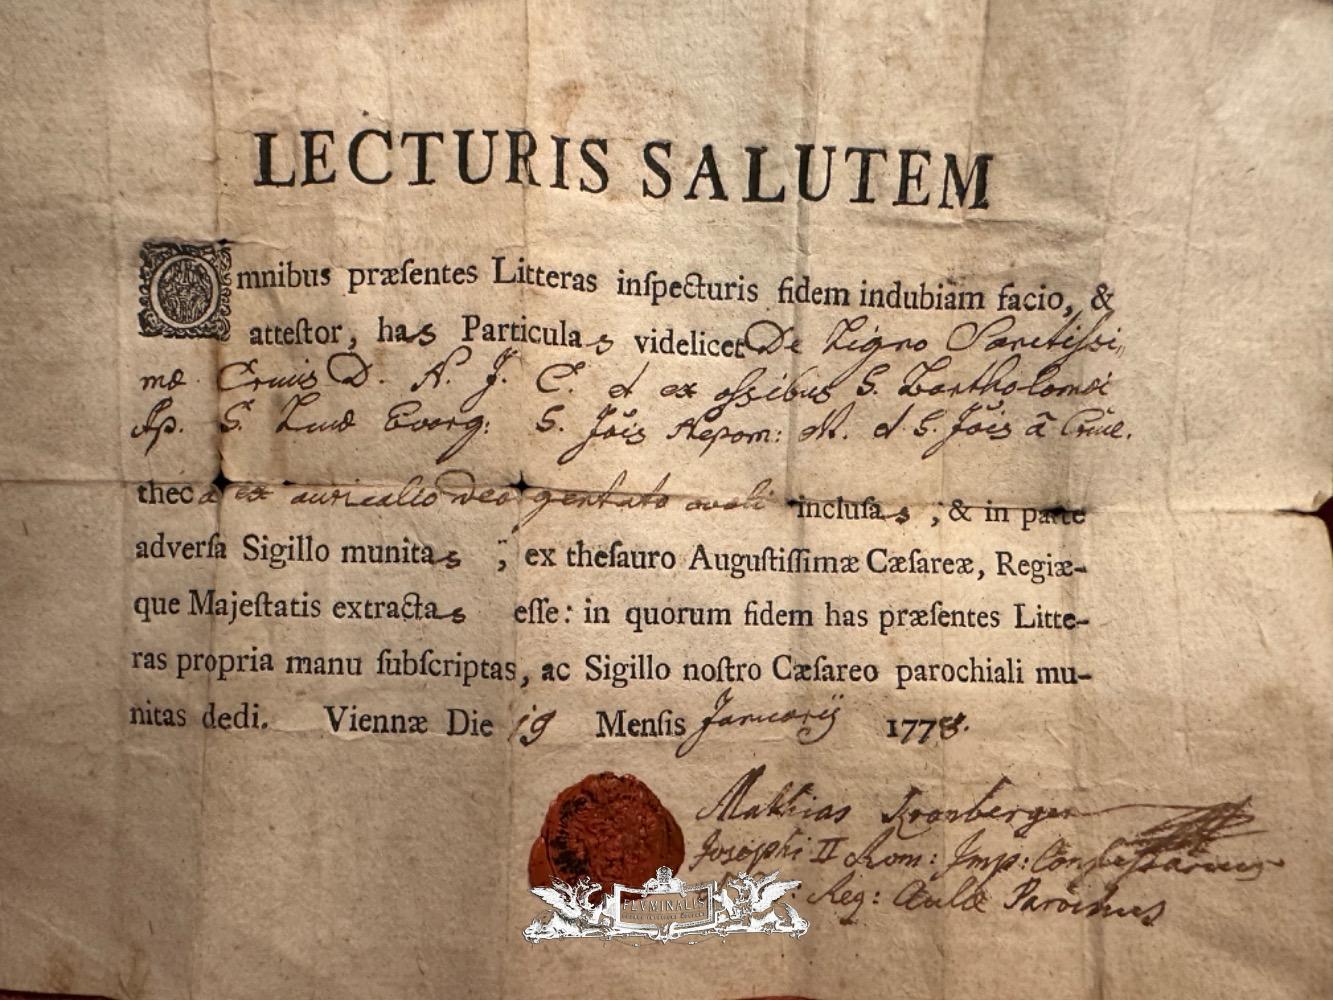 LECTURIS SALUTEM
Omnibus præſentes Litteras inſpecturis fidem indubiam facio, &
atteſtor, has Particulas videlicet De Ligno Sanctiſſi„
mæ Crucis D. N. J. C. et ex oſsibus S. Bartholomæi
Ap. S. Lucæ Evang: S. Jois Nepom: M. et S. Jois a Cruce.
theca ex auricalco deargentato ovali incluſas, & in parte
adverſa Sigillo munitas, ex theſauro Auguſtiſſimæ Cæſareæ, Regiæ-
que Majeſtatis extractas eſſe: in quorum fidem has præſentes Litte-
ras propria manu ſubſcriptas, ac Sigillo noſtro Cæſareo parochiali mu-
nitas dedi. Viennæ Die 19 Menſis Januarij 1778.
Mathias Kronberger
Josephi II Rom: Imp: Confessarius
Reg: Aulæ Parochus
FLUMINALIS